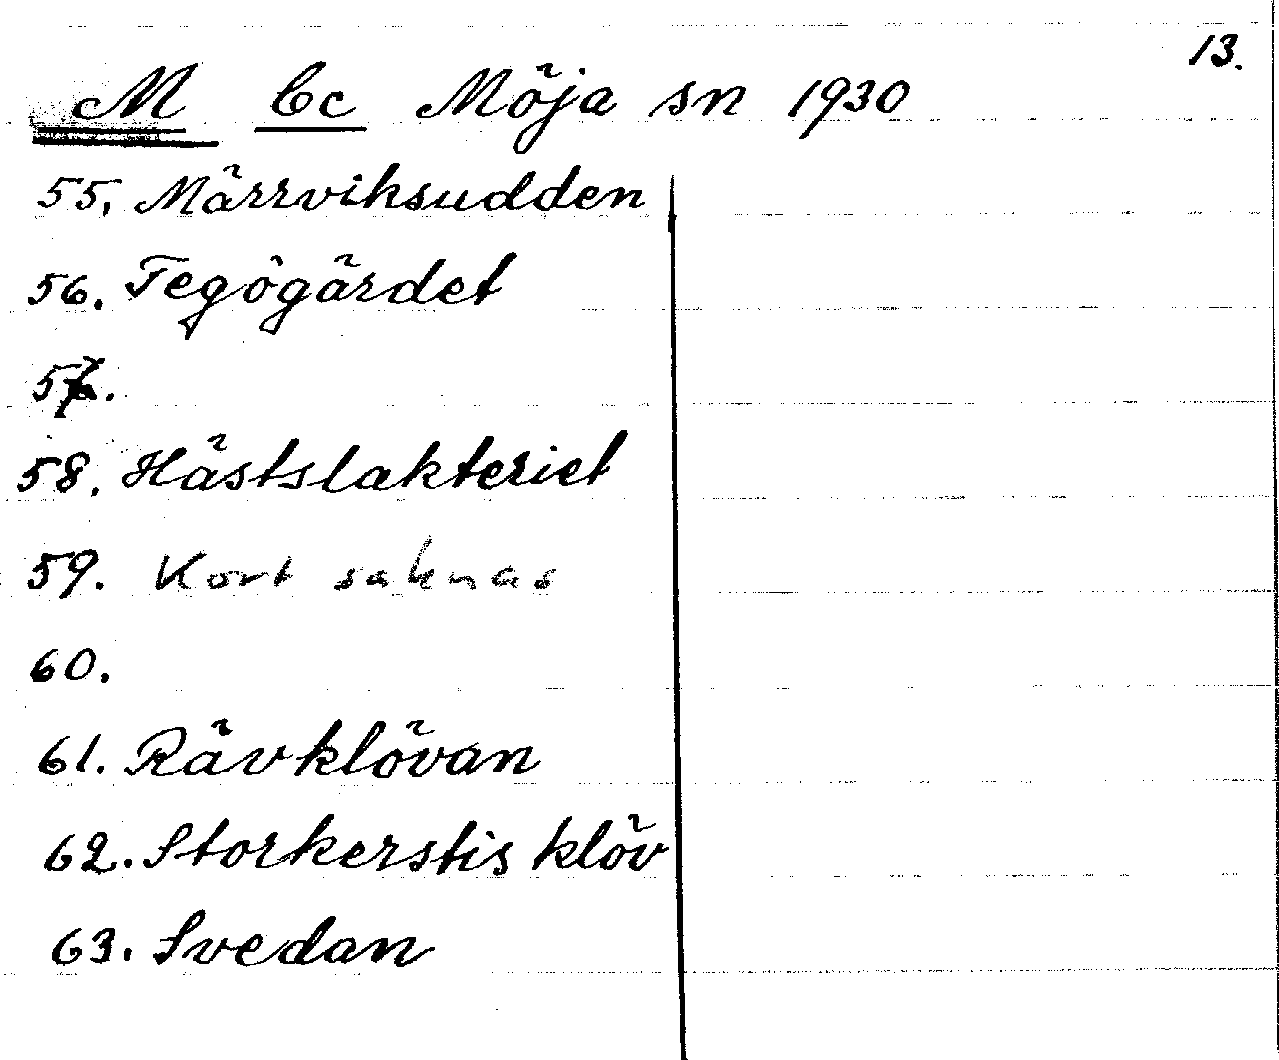 13.
M bc Möja sn 1930
55. Märrviksudden
56. Tegögärdet
57.
58. Hästslakteriet
59. Kort saknas
60.
61. Rävklövan
62. Storkerstis klöv
63. Svedan